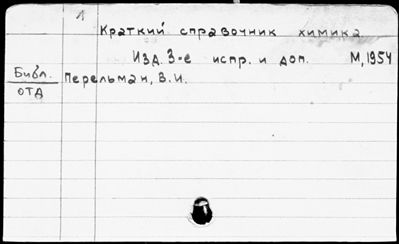 1
Краткий справочник химика
Изд. 3-е испр. и доп. М, 1954
Библ. Перельман, В.И.
ОТД